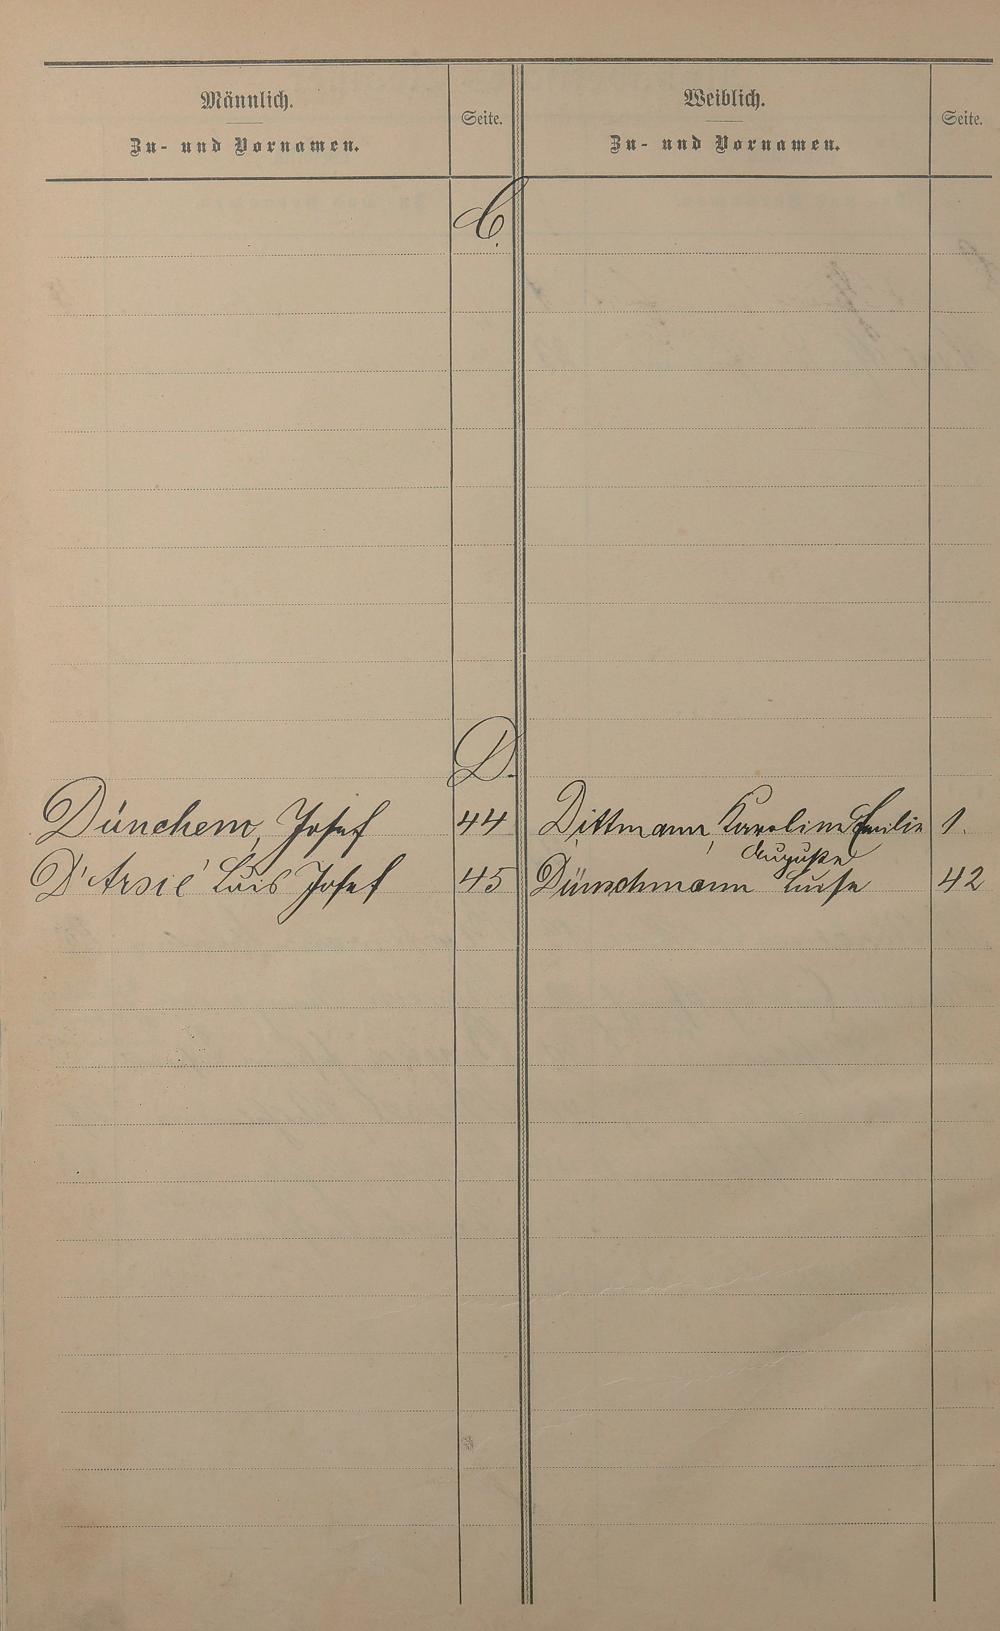 Männlich.
Zu- und Vornamen.
Seite.
Weiblich.
Zu- und Vornamen.
Seite.
C.
D.
Dünchem, Josef 44
Dittmann, Karoline Emilie 1.
Auguste
D'Arsié Luis Josef 45
Dünschmann Luise 42